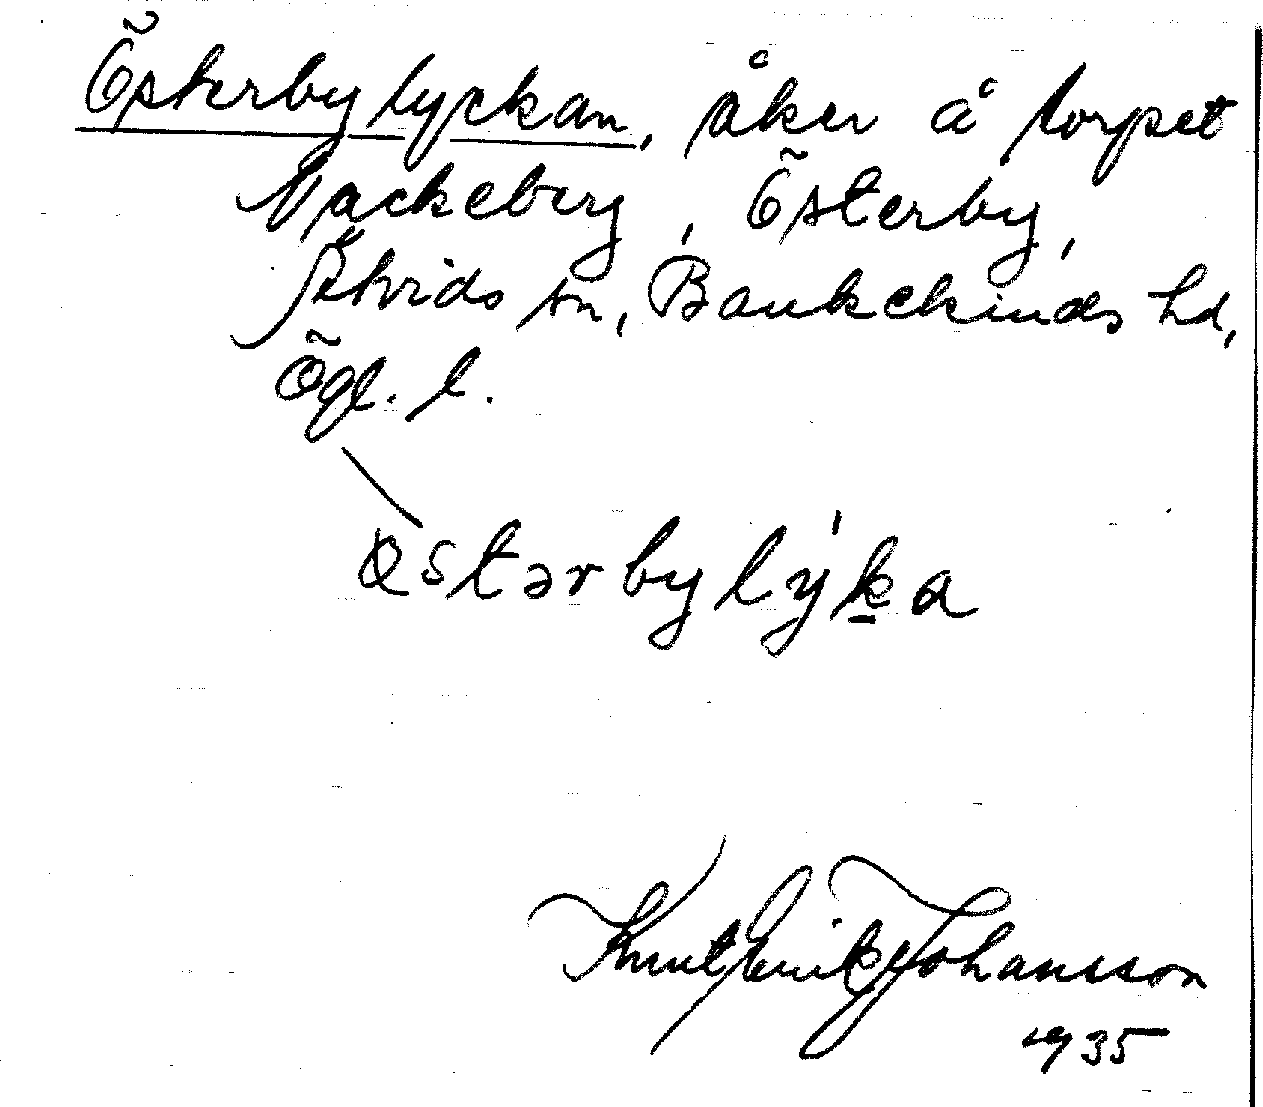 Österbylyckan, åker å torpet
Nackeberg, Österby,
Åtvids sn, Bankekinds hd,
Ögl. l.
östərbylýka
Knut Erik Johansson
1935